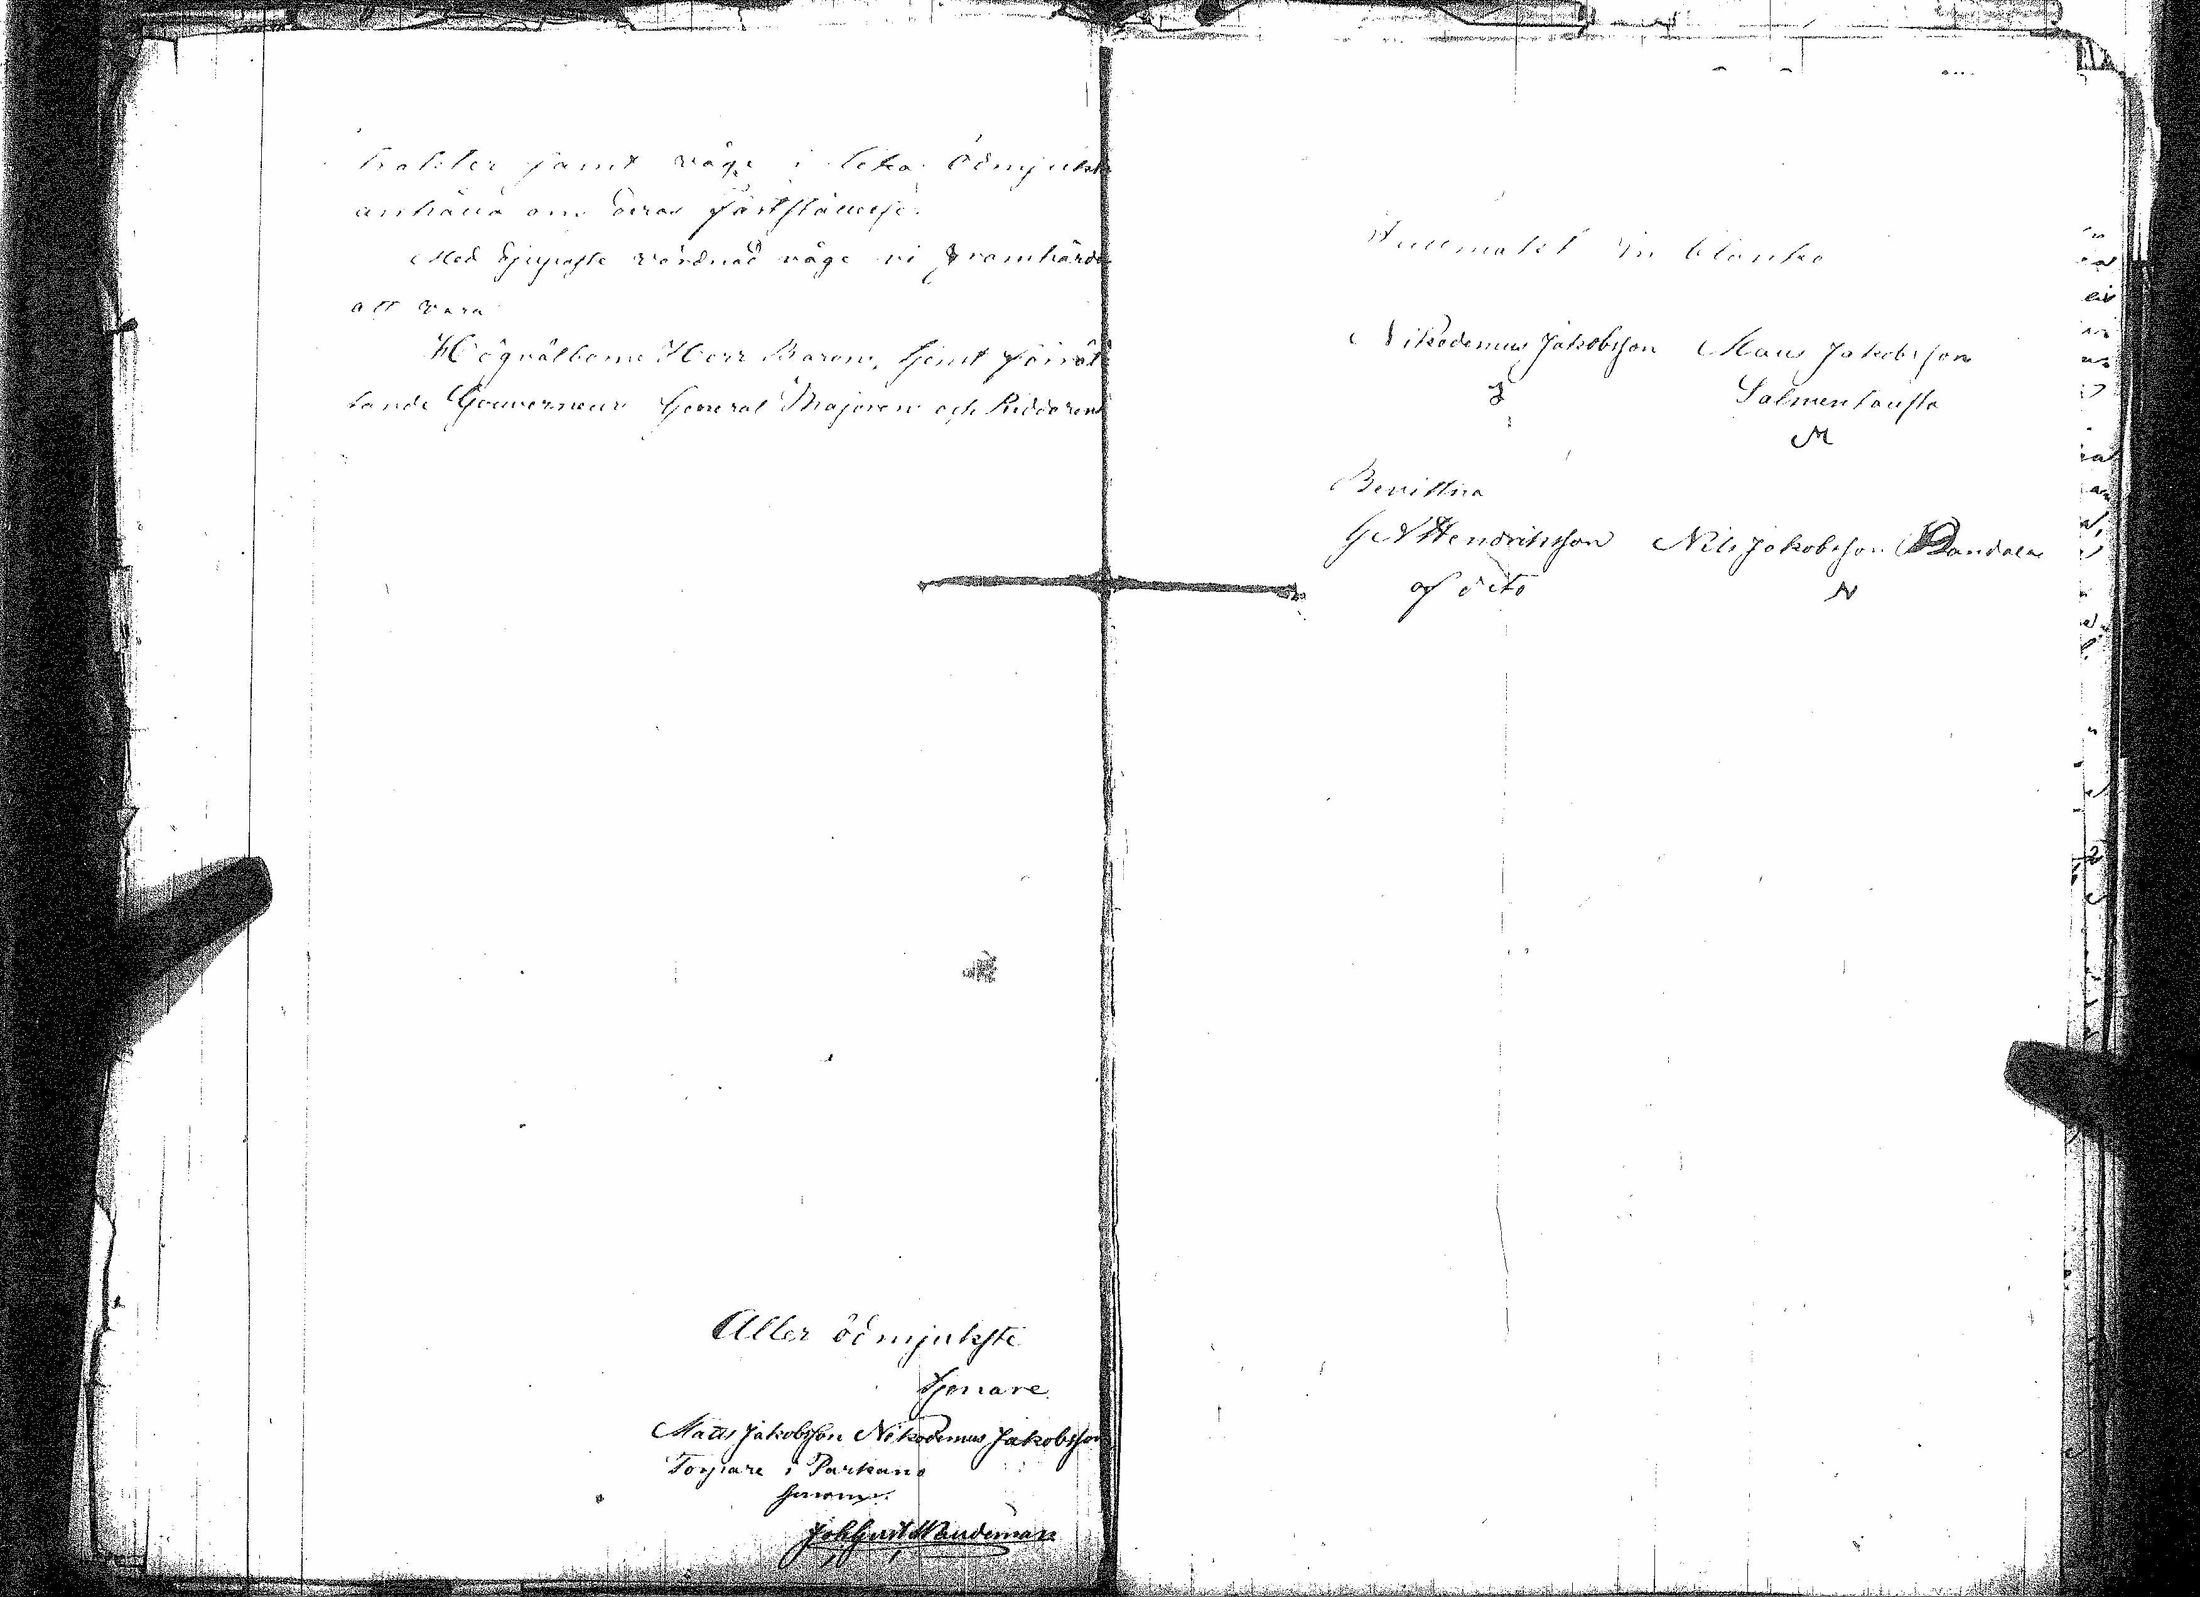 trakter samt våge i lika ödmjukt
anhålla om deras fastställelse.
Med djupaste vördnad våge vi framhärda
att vara
Högvälborne Herr Baron, samt förrät
tande Gouverneur General Majoren och Riddaren
Aller ödmjukste
tjenare
Matts Jakobsson Nikodemus Jakobsson
Torpare i Parkano
genom
Joh Gust Wandeman
Fullmakt in blanko
Nikodemus Jakobsson Matts Jakobsson
Salmentausta
M
Bevittna
G N Hendriksson Nils Jakobsson
N